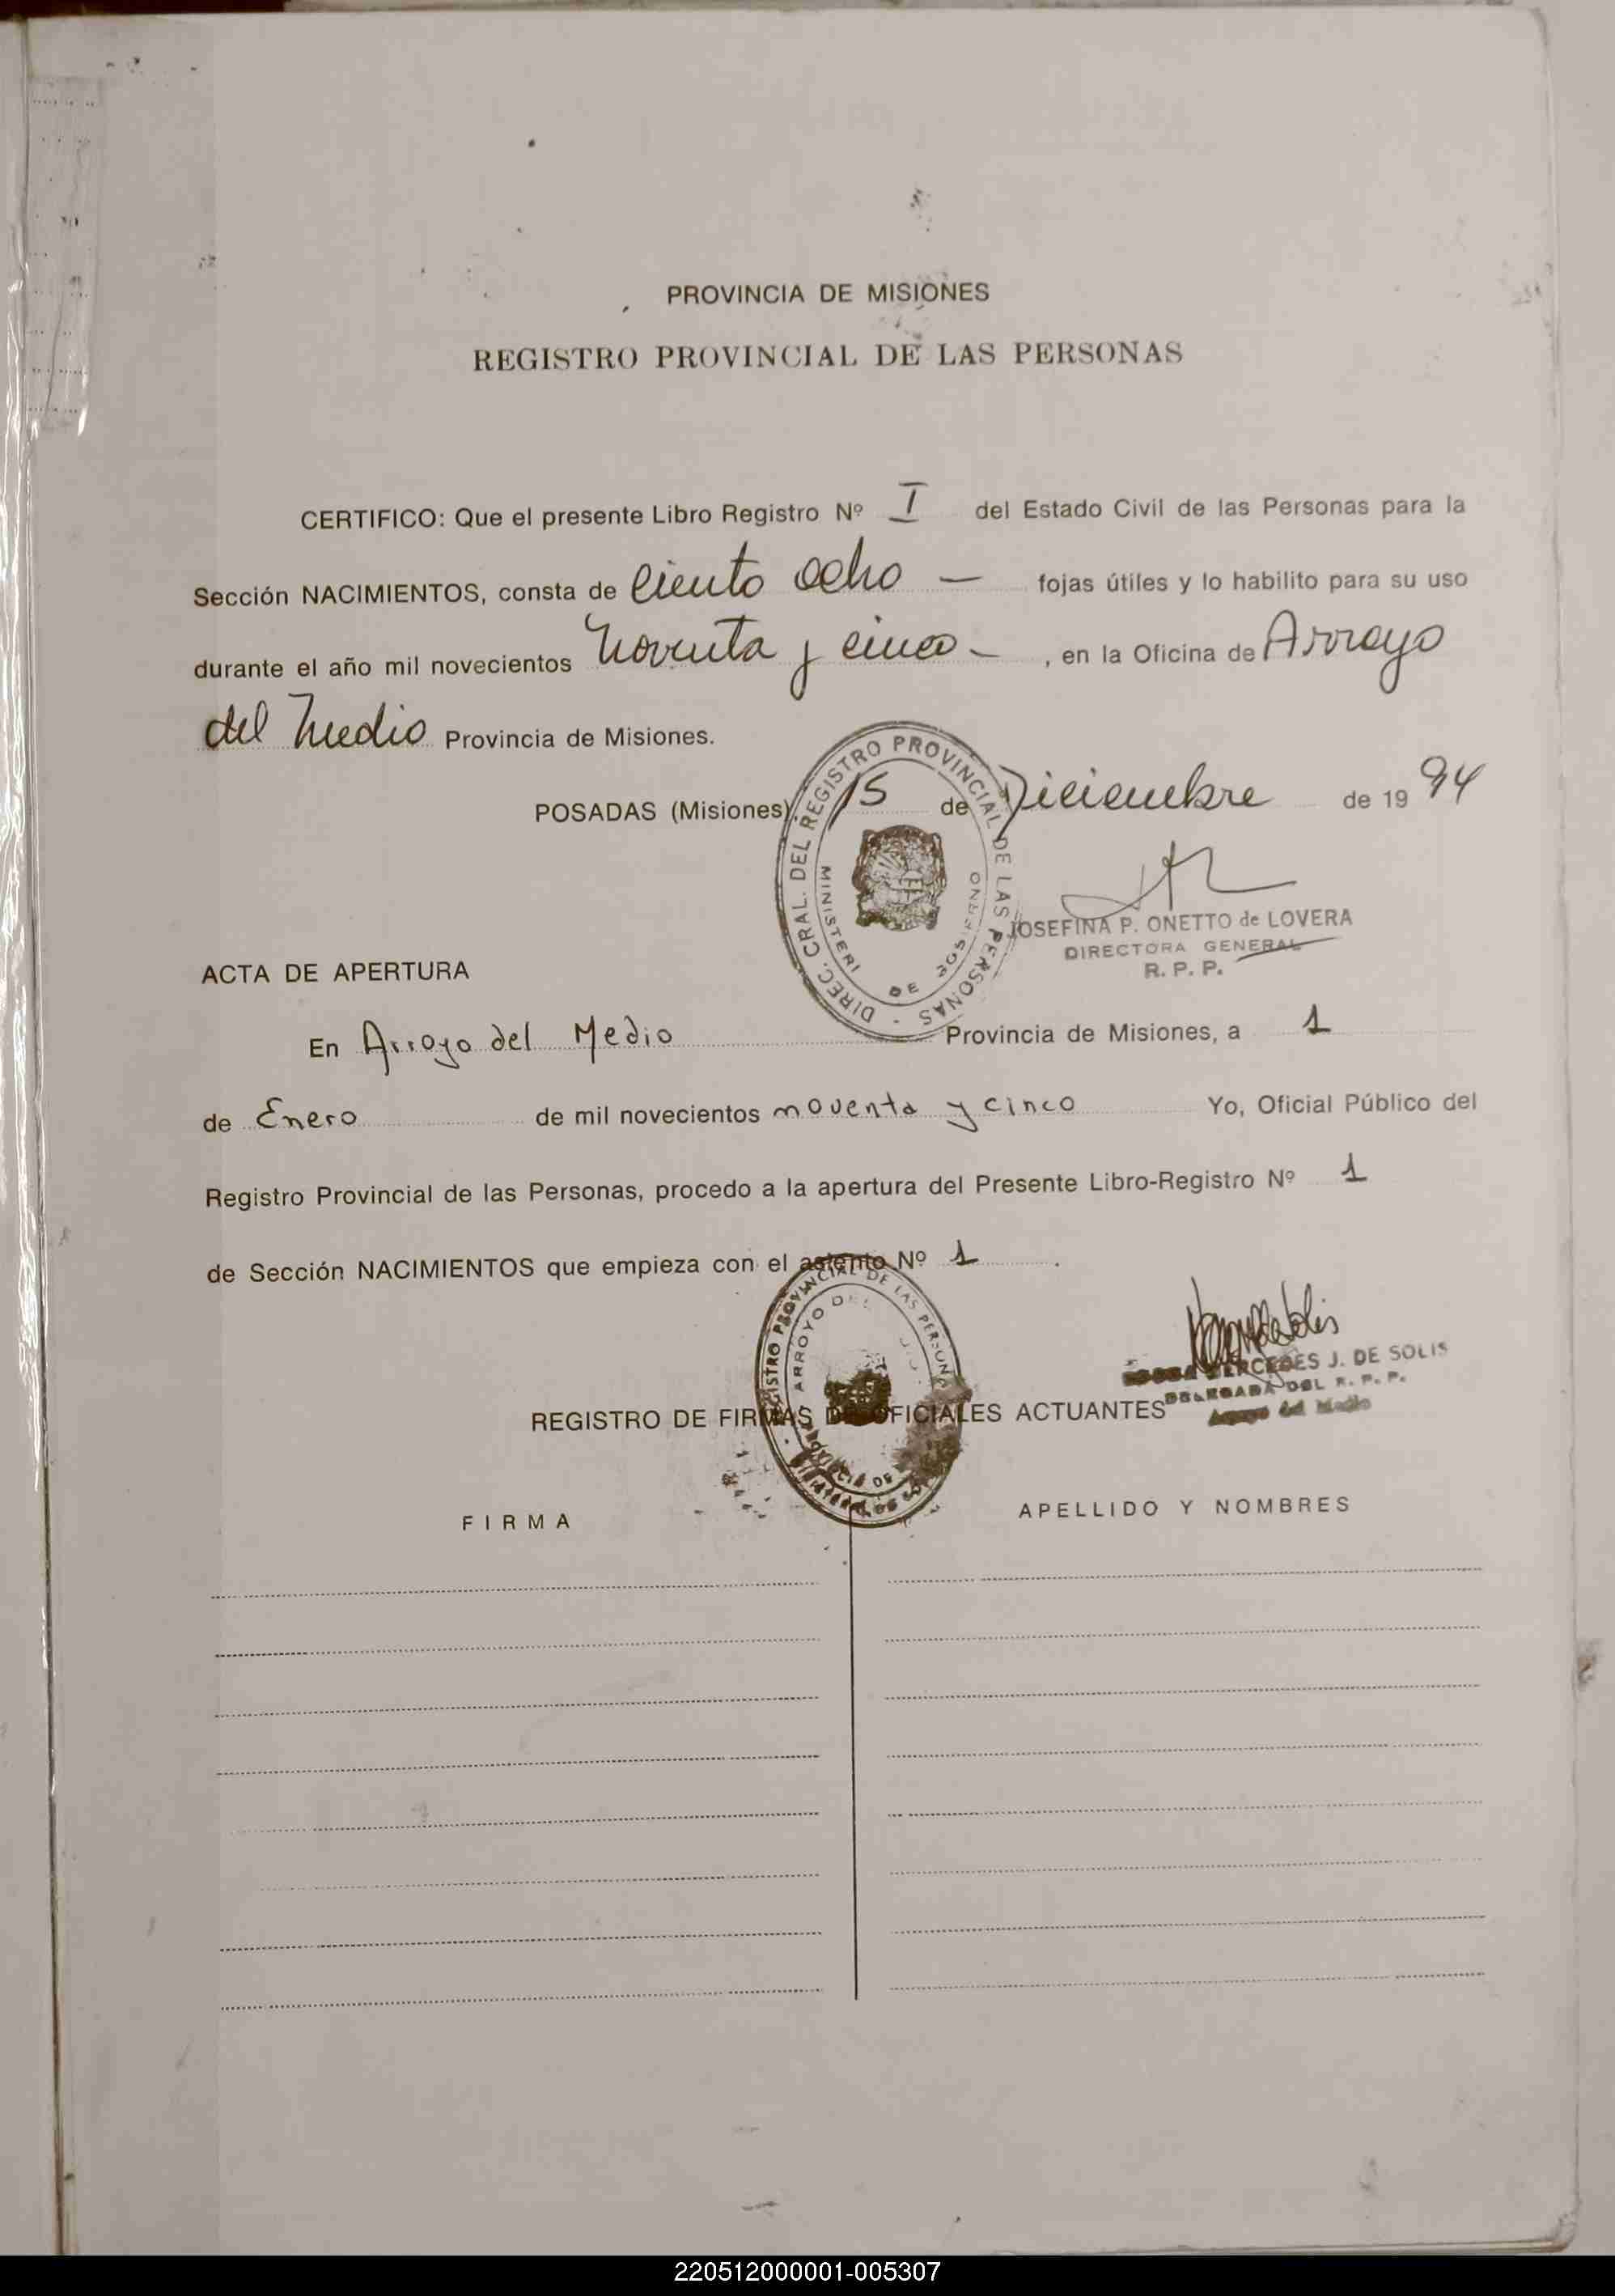 PROVINCIA DE MISIONES
REGISTRO PROVINCIAL DE LAS PERSONAS
CERTIFICO: Que el presente Libro Registro Nº I del Estado Civil de las Personas para la
Sección NACIMIENTOS, consta de Ciento Ocho — fojas útiles y lo habilito para su uso
durante el año mil novecientos noventa y cinco - , en la Oficina de Arroyo
del Medio Provincia de Misiones.
POSADAS (Misiones) 15 de Diciembre de 19 94
DIREC. GRAL. DEL REGISTRO PROVINCIAL DE LAS PERSONAS -
MINISTERI DE GOBIERNO
JOSEFINA P. ONETTO de LOVERA
DIRECTORA GENERAL
R. P. P.
ACTA DE APERTURA
En Arroyo del Medio Provincia de Misiones, a 1
de Enero de mil novecientos noventa y cinco Yo, Oficial Público del
Registro Provincial de las Personas, procedo a la apertura del Presente Libro-Registro Nº 1
de Sección NACIMIENTOS que empieza con el asiento Nº 1 .
ISTRO PROVINCIAL DE LAS PERSONA
ARROYO DEL
MERCEDES J. DE SOLIS
DELEGADA DEL R. P. P.
Arroyo del Medio
REGISTRO DE FIRMAS DE OFICIALES ACTUANTES
FIRMA
APELLIDO Y NOMBRES
220512000001-005307